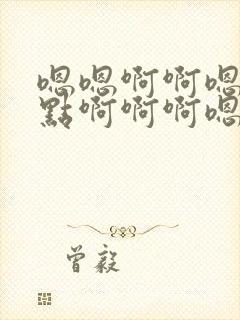 嗯嗯啊啊嗯
點啊啊啊嗯
曾毅